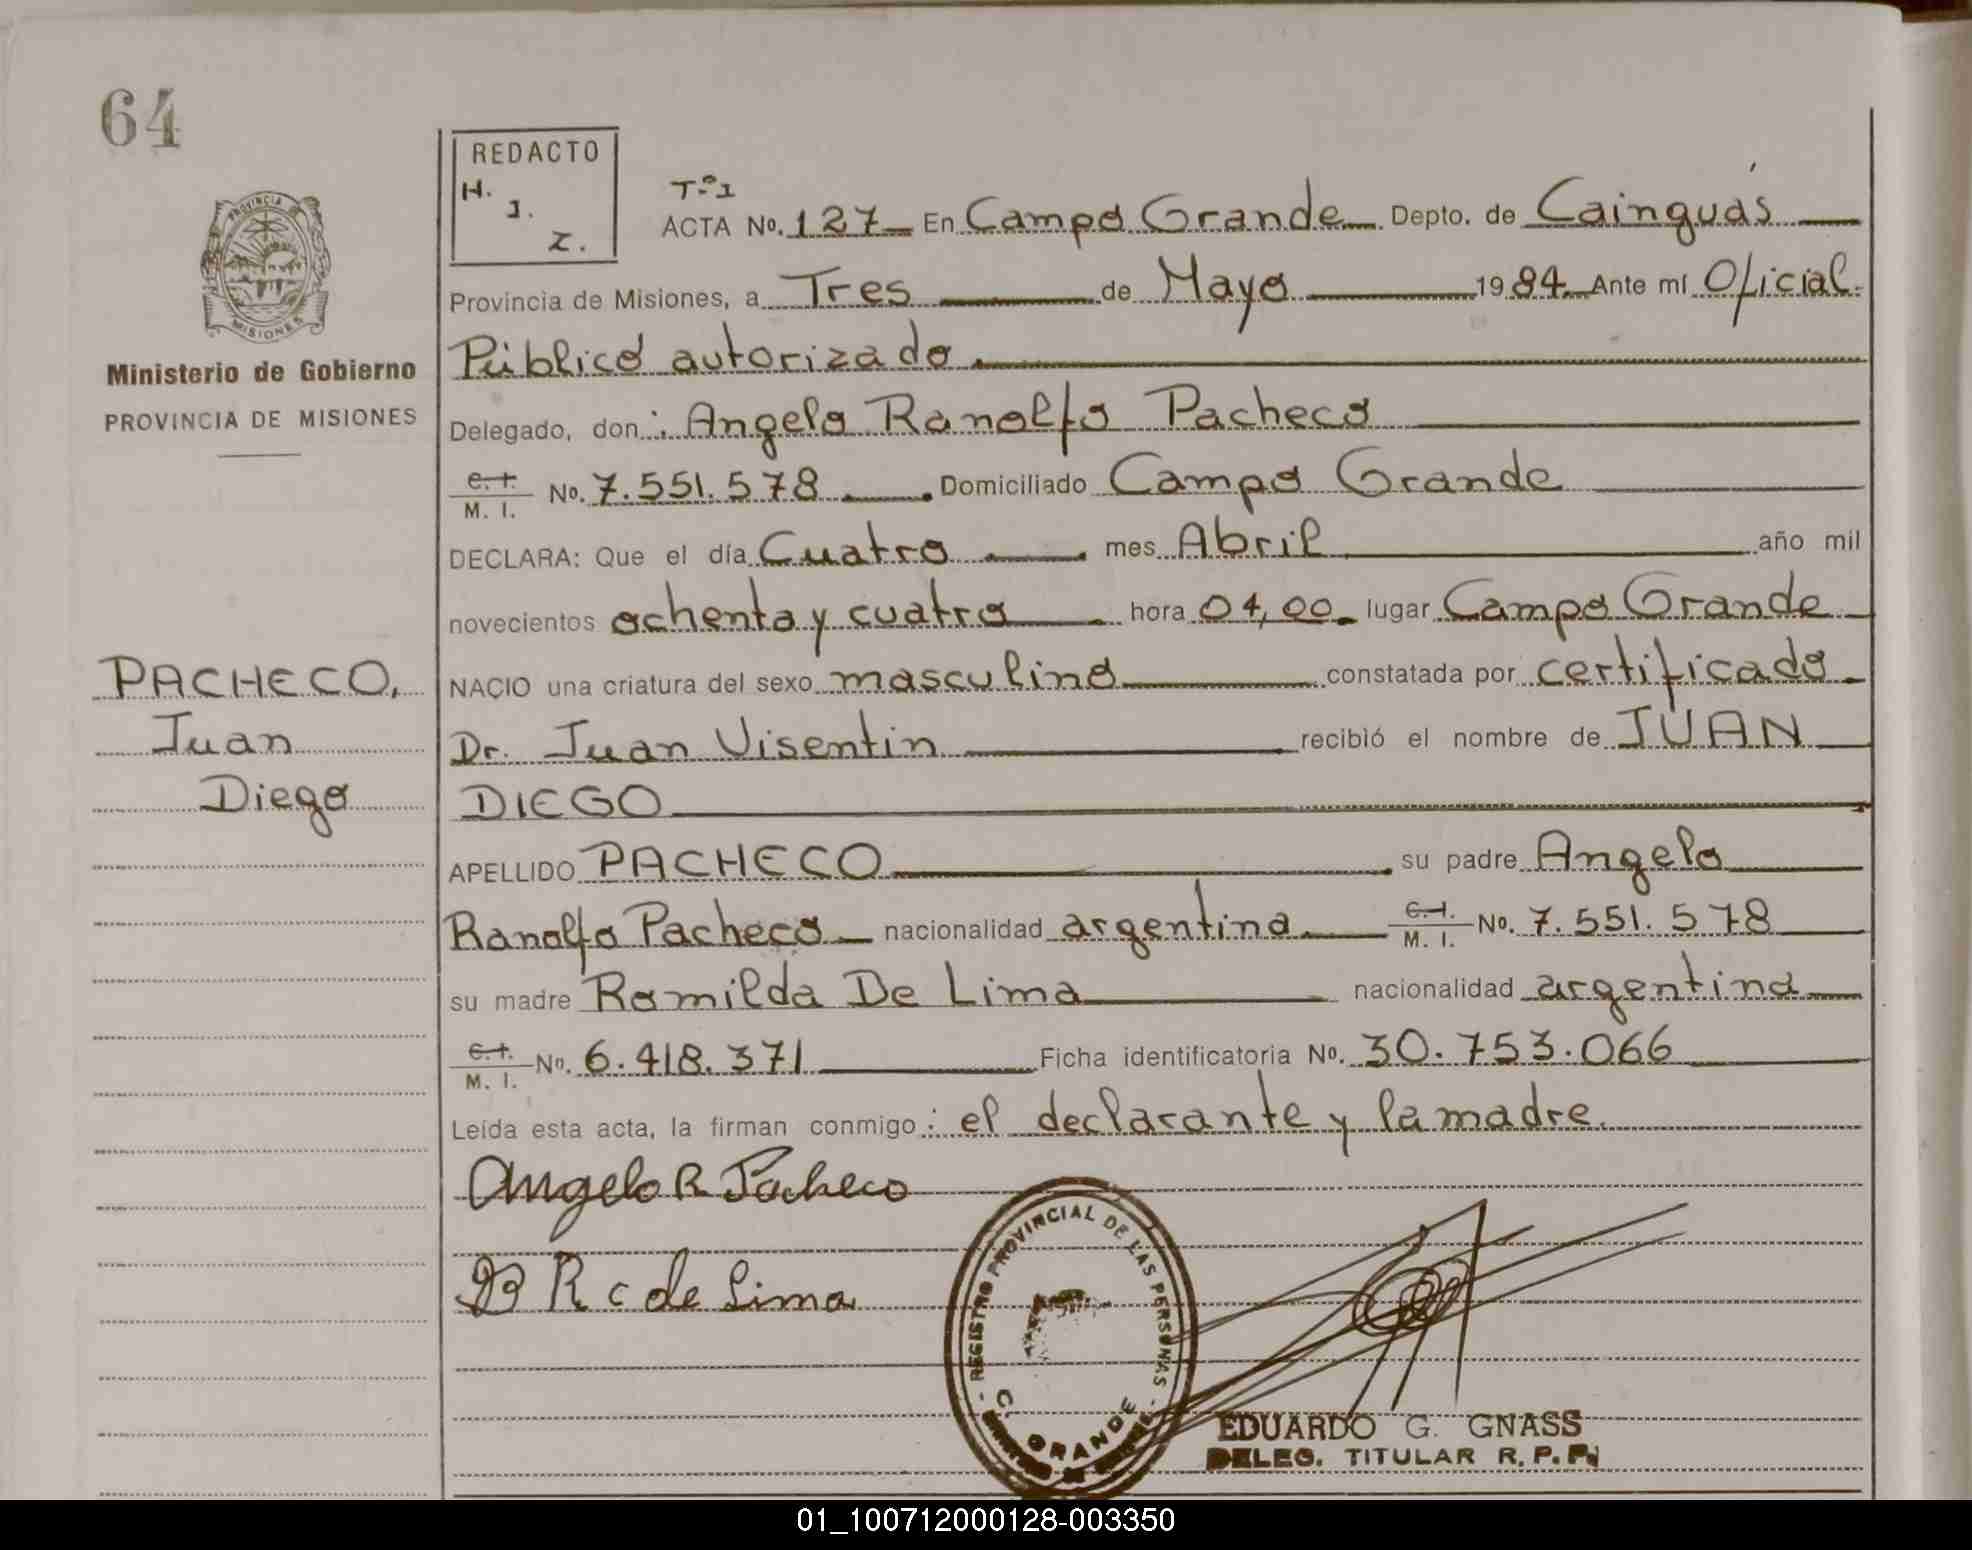 64
REDACTO
H.
J.
Z.
PROVINCIA DE
MISIONES
Ministerio de Gobierno
PROVINCIA DE MISIONES
T.º I
ACTA No. 127 En Campo Grande Depto. de Cainguás
Provincia de Misiones, a Tres de Mayo 1984 Ante mí Oficial
Público autorizado
Delegado, don: Angelo Ranolfo Pacheco
C.I. M. I. No. 7.551.578 Domiciliado Campo Grande
DECLARA: Que el día Cuatro mes Abril año mil
novecientos ochenta y cuatro hora 04,00 lugar Campo Grande
PACHECO,
Juan
Diego
NACIO una criatura del sexo masculino constatada por certificado
Dr. Juan Visentin recibió el nombre de JUAN
DIEGO
APELLIDO PACHECO su padre Angelo
Ranolfo Pacheco nacionalidad argentina C.I. M. I. No. 7.551.578
su madre Romilda De Lima nacionalidad argentina
C.I. M. I. No. 6.418.371 Ficha identificatoria No. 30.753.066
Leída esta acta, la firman conmigo: el declarante y la madre.
Angelo R Pacheco
R c de Lima
- REGISTRO PROVINCIAL DE LAS PERSONAS -
C. GRANDE
EDUARDO G. GNASS
DELEG. TITULAR R. P. P.
01_100712000128-003350